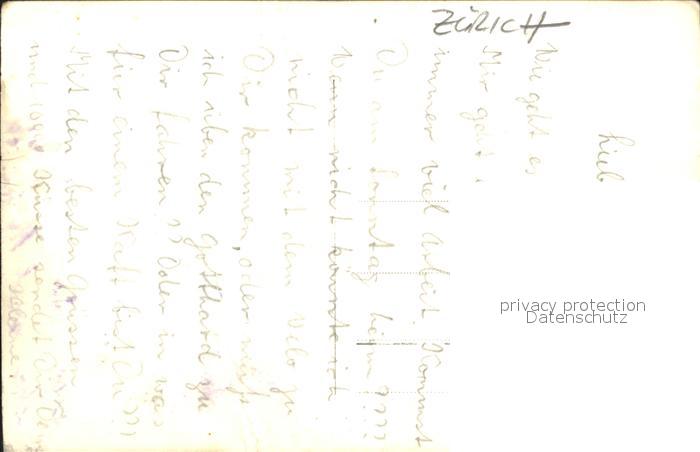 ZÜRICH
Lieb
Wie geht es
Mir geht
immer viel Arbeit. Kommst
Du am Sonntag heim????
Wann nicht könnte ich
nicht mit dem Velo zu
Dir kommen, oder muss
ich über den Gotthard zu
Dir fahren?? Oder in was
für einem Kaff bist Du???
Mit den besten Grüssen
und 1000 Küsse sendet Dir Dein
privacy protection
Datenschutz